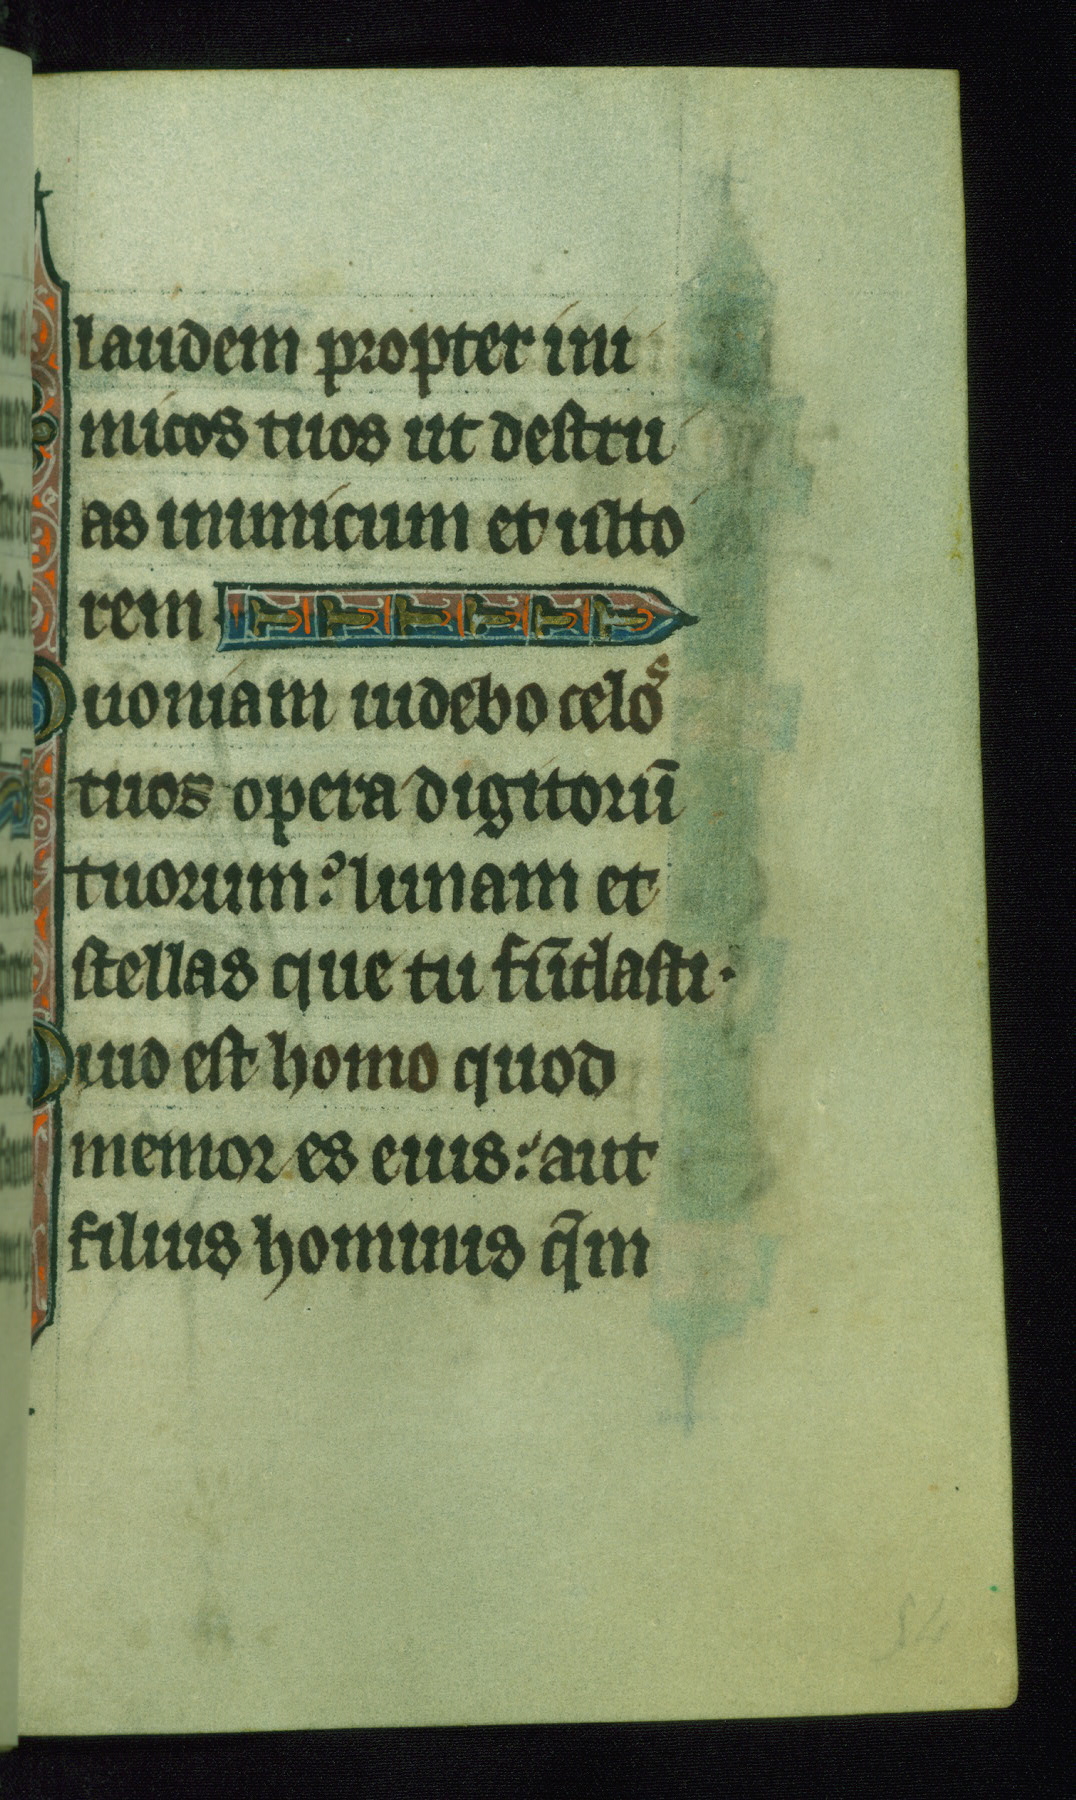 laudem propter ini
micos tuos ut destru
as inimicum et ulto
rem
Quoniam uidebo celos
tuos opera digitorū
tuorum: lunam et
stellas que tu fūdasti·
Quid est homo quod
memor es eius: aut
filius hominis qm̄
54